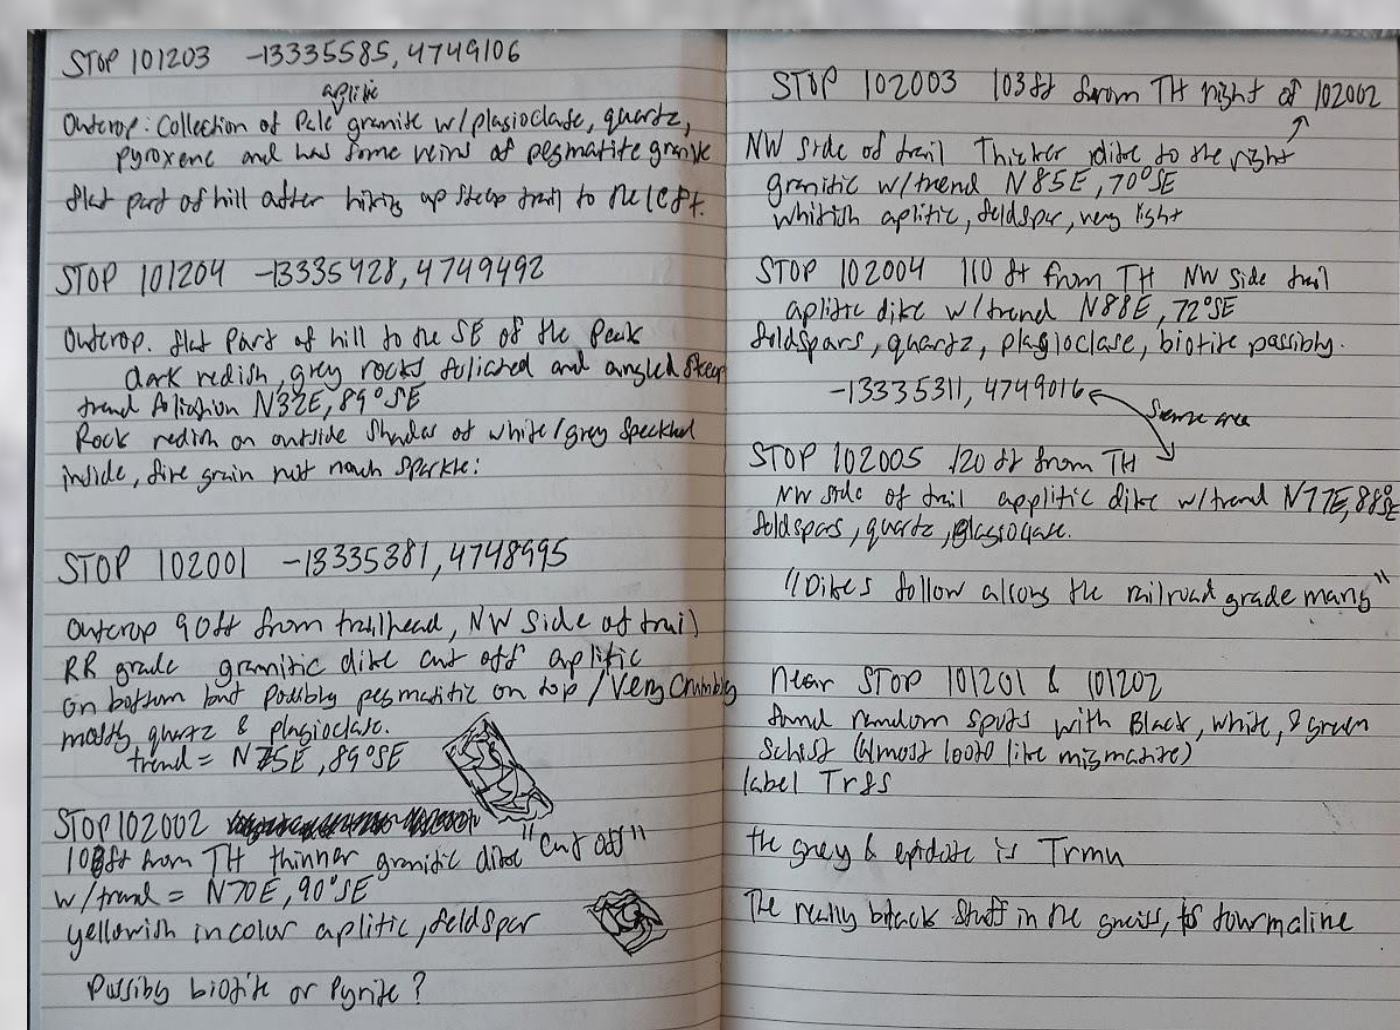 STOP 101203 -13335585, 4749106
aplitic
Outcrop: Collection of Pale granite w/plagioclase, quartz,
pyroxene and has some veins of pegmatite granite
flat part of hill after hiking up steep trail to the left.
STOP 101204 -13335428, 4749492
Outcrop. flat part of hill to the SE of the Peak
dark redish, grey rocks foliated and angled steep
trend foliation N32E, 89°SE
Rock redish on outside shades of white/grey speckled
inside, fine grain not much sparkle:
STOP 102001 -13335381, 4748995
Outcrop 90ft from trailhead, NW side of trail
RR grade granitic dike cut off aplitic
on bottom but possibly pegmatitic on top / Very crumbly
mostly quartz & plagioclase.
trend = N75E, 89°SE
STOP 102002
"Cut off"
103ft from TH thinner granitic dike
w/trend = N70E, 90°SE
yellowish in color aplitic, feldspar
Possiby biotite or Pyrite?
STOP 102003 103ft from TH right of 102002
NW side of trail Thicker dike to the right
granitic w/trend N85E, 70°SE
whitish aplitic, feldspar, very light
STOP 102004 110 ft from TH NW side trail
aplitic dike w/trend N88E, 72°SE
feldspars, quartz, plagioclase, biotite possibly.
-13335311, 4749016
Same area
STOP 102005 120 ft from TH
NW side of trail applitic dike w/trend N77E, 88°SE
feldspars, quartz, plagioclase.
"Dikes follow along the railroad grade many"
Near STOP 101201 & 101202
found random spots with Black, white, & green
Schist (almost looks like migmatite)
label Trgs
the grey & epidote is Trmu
The really black stuff in the gneiss, is tourmaline